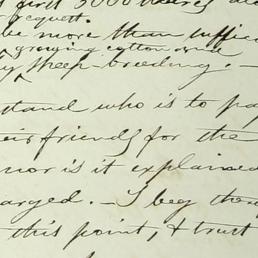 first 5000 acres
request.
be more than suffici
growing cotton and
sheep breeding. -
stand who is to pa
eir friends for the
nor is it explained
arged. - I beg the
this point, & trust